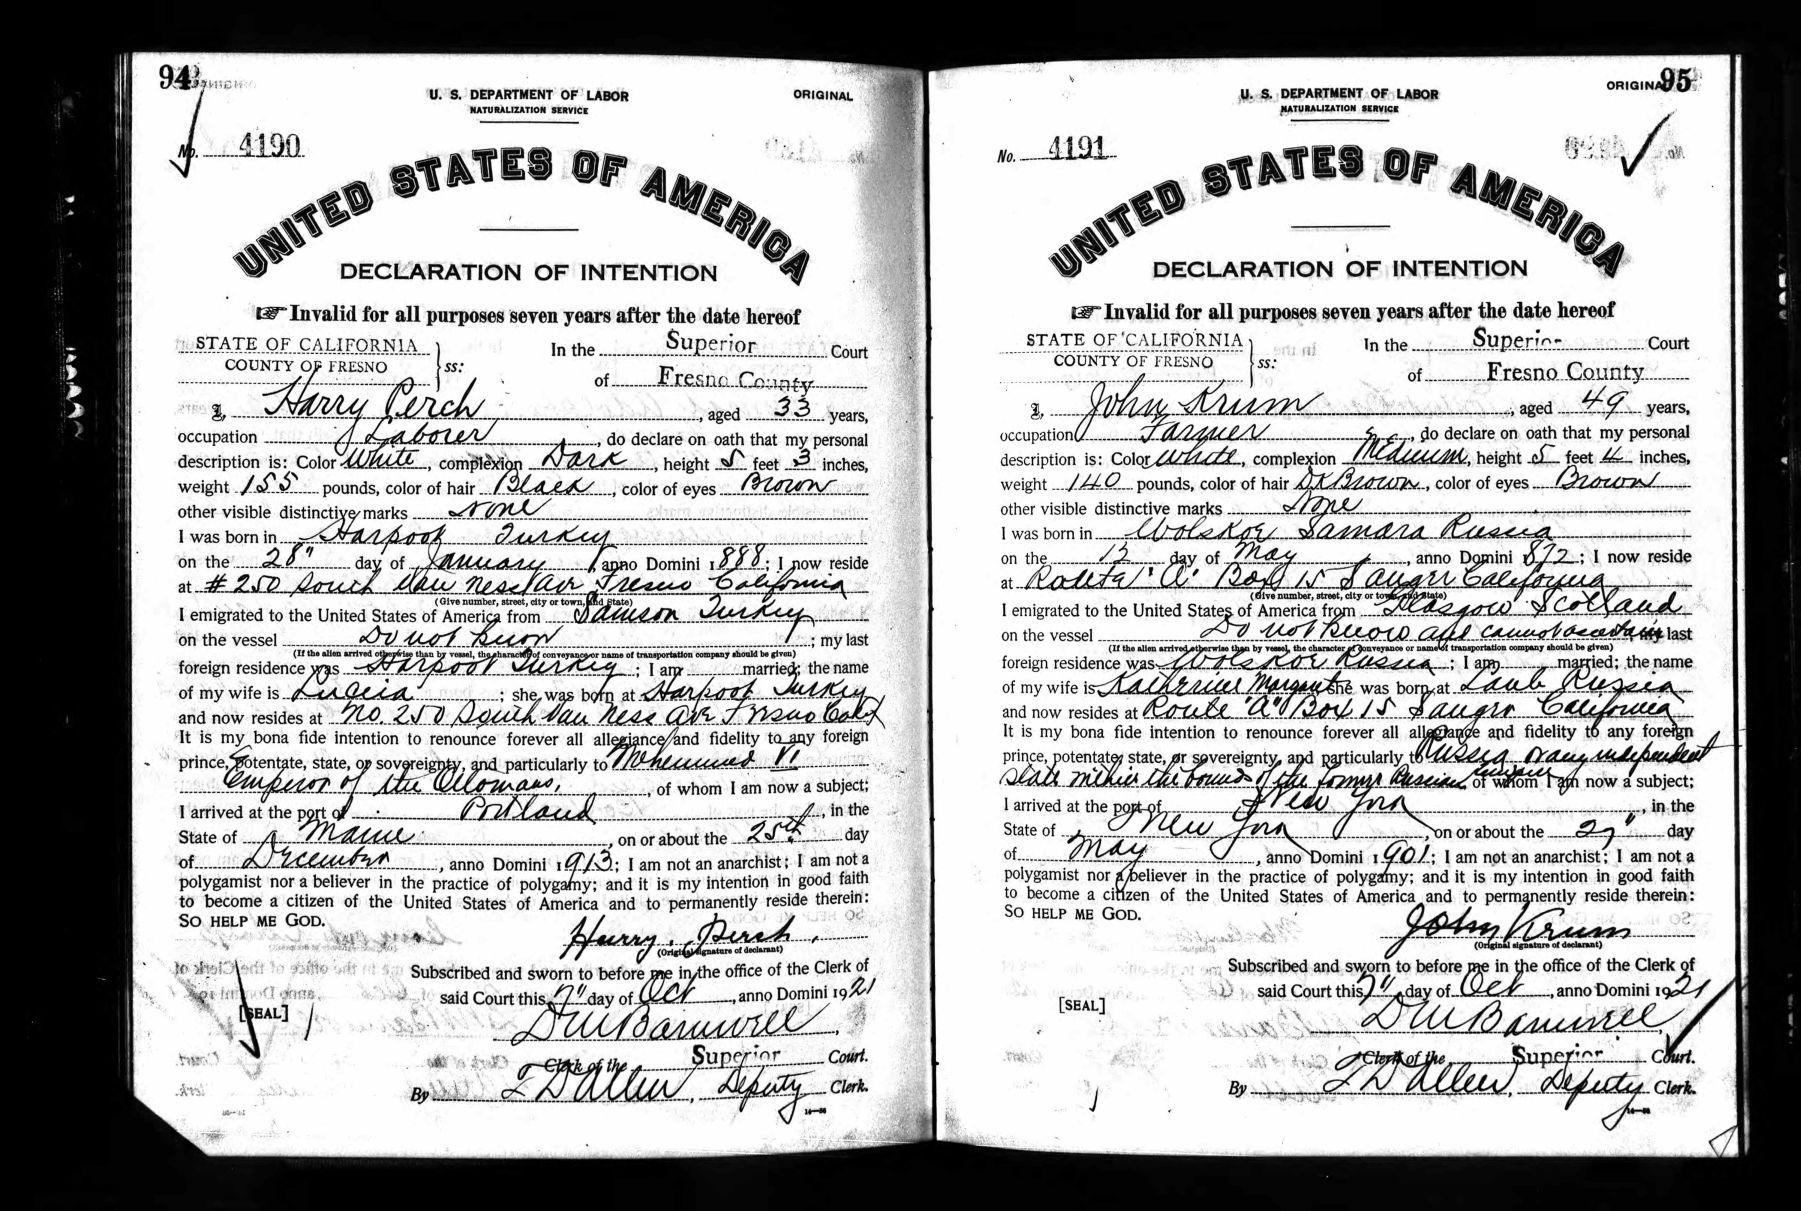 94
U. S. DEPARTMENT OF LABOR
NATURALIZATION SERVICE
ORIGINAL
No. 4190
UNITED STATES OF AMERICA
DECLARATION OF INTENTION
☞ Invalid for all purposes seven years after the date hereof
STATE OF CALIFORNIA
COUNTY OF FRESNO
ss:
In the Superior Court
of Fresno County
I, Harry Perch, aged 33 years,
occupation Laborer, do declare on oath that my personal
description is: Color White, complexion Dark, height 5 feet 3 inches,
weight 155 pounds, color of hair Black, color of eyes Brown
other visible distinctive marks None
I was born in Harpoot Turkey
on the 28" day of January, anno Domini 1888; I now reside
at #250 South Van Ness Ave Fresno California
(Give number, street, city or town, and State)
I emigrated to the United States of America from Samson Turkey
on the vessel Do not know; my last
(If the alien arrived otherwise than by vessel, the character of conveyance or name of transportation company should be given)
foreign residence was Harpoot Turkey; I am married; the name
of my wife is Lucia; she was born at Harpoot Turkey
and now resides at No. 250 South Van Ness Ave Fresno Calif
It is my bona fide intention to renounce forever all allegiance and fidelity to any foreign
prince, potentate, state, or sovereignty, and particularly to Mohemmed VI
Emperor of the Ottomans, of whom I am now a subject;
I arrived at the port of Portland, in the
State of Maine, on or about the 25th day
of December, anno Domini 1913; I am not an anarchist; I am not a
polygamist nor a believer in the practice of polygamy; and it is my intention in good faith
to become a citizen of the United States of America and to permanently reside therein:
SO HELP ME GOD.
Harry Persh.
(Original signature of declarant)
Subscribed and sworn to before me in the office of the Clerk of
said Court this 7" day of Oct, anno Domini 1921
[SEAL]
D M Barnwell,
Clerk of the Superior Court.
By F D Allen, Deputy Clerk.
95
U. S. DEPARTMENT OF LABOR
NATURALIZATION SERVICE
ORIGINAL
No. 4191
UNITED STATES OF AMERICA
DECLARATION OF INTENTION
☞ Invalid for all purposes seven years after the date hereof
STATE OF CALIFORNIA
COUNTY OF FRESNO
ss:
In the Superior Court
of Fresno County
I, John Krum, aged 49 years,
occupation Farmer, do declare on oath that my personal
description is: Color White, complexion Medium, height 5 feet 4 inches,
weight 140 pounds, color of hair Dk Brown, color of eyes Brown
other visible distinctive marks None
I was born in Wolskoe Samara Russia
on the 12 day of May, anno Domini 1872; I now reside
at Route "A" Box 15 Sanger California
(Give number, street, city or town, and State)
I emigrated to the United States of America from Glasgow Scotland
on the vessel Do not know and cannot ascertain my last
(If the alien arrived otherwise than by vessel, the character of conveyance or name of transportation company should be given)
foreign residence was Wolskoe Russia; I am married; the name
of my wife is Katherine Margaret she was born at Laub Russia
and now resides at Route "A" Box 15 Sanger California
It is my bona fide intention to renounce forever all allegiance and fidelity to any foreign
prince, potentate, state, or sovereignty, and particularly to Russia or any independent
state within the bounds of the former Russian Empire of whom I am now a subject;
I arrived at the port of New York, in the
State of New York, on or about the 29" day
of May, anno Domini 1901; I am not an anarchist; I am not a
polygamist nor a believer in the practice of polygamy; and it is my intention in good faith
to become a citizen of the United States of America and to permanently reside therein:
SO HELP ME GOD.
John Krum
(Original signature of declarant)
Subscribed and sworn to before me in the office of the Clerk of
said Court this 7" day of Oct, anno Domini 1921
[SEAL]
D M Barnwell,
Clerk of the Superior Court.
By F D Allen, Deputy Clerk.